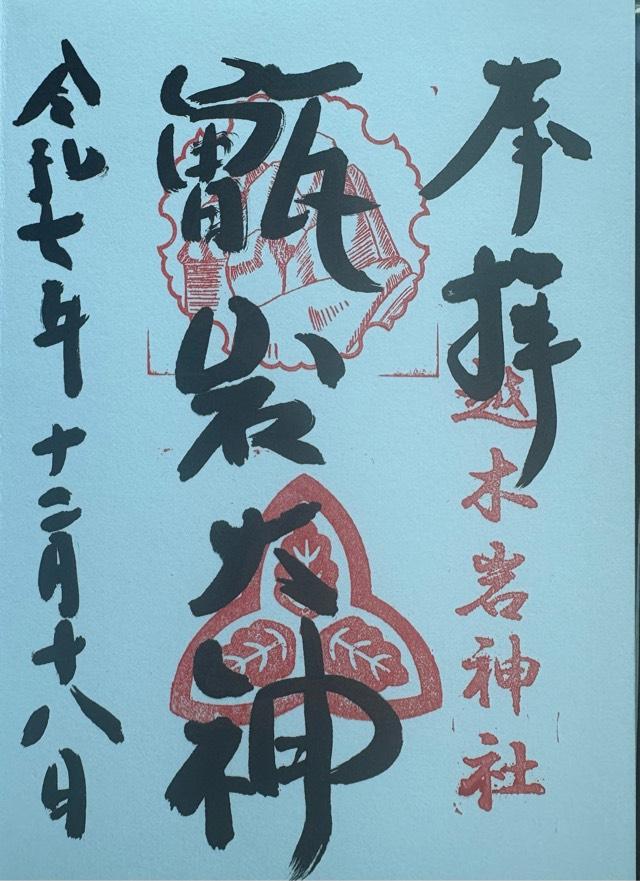 奉拝
越木岩神社
甑岩大神
令和七年十二月十八日